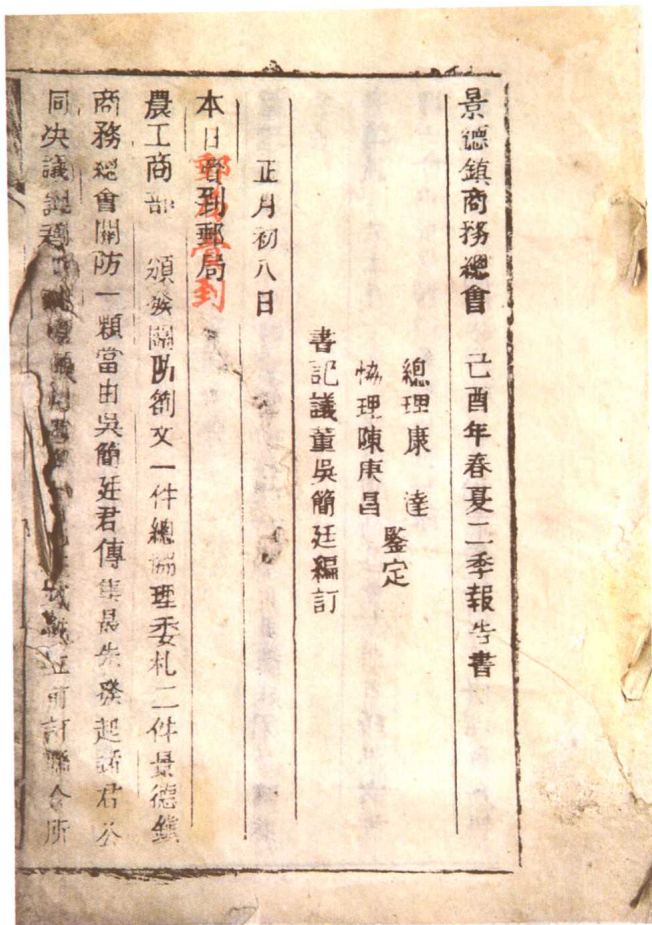 景德鎮商務總會 己酉年春夏二季報告書
總理康 達
協理陳庚昌
鑒定
書記議董吳簡廷編訂
正月初八日
本日齎到郵局
農工商部 頒發關防劄文一件總協理委札二件景德鎮
商務總會關防一顆當由吳簡廷君傳集最先發起諸君公
同決議 前訂聯合所